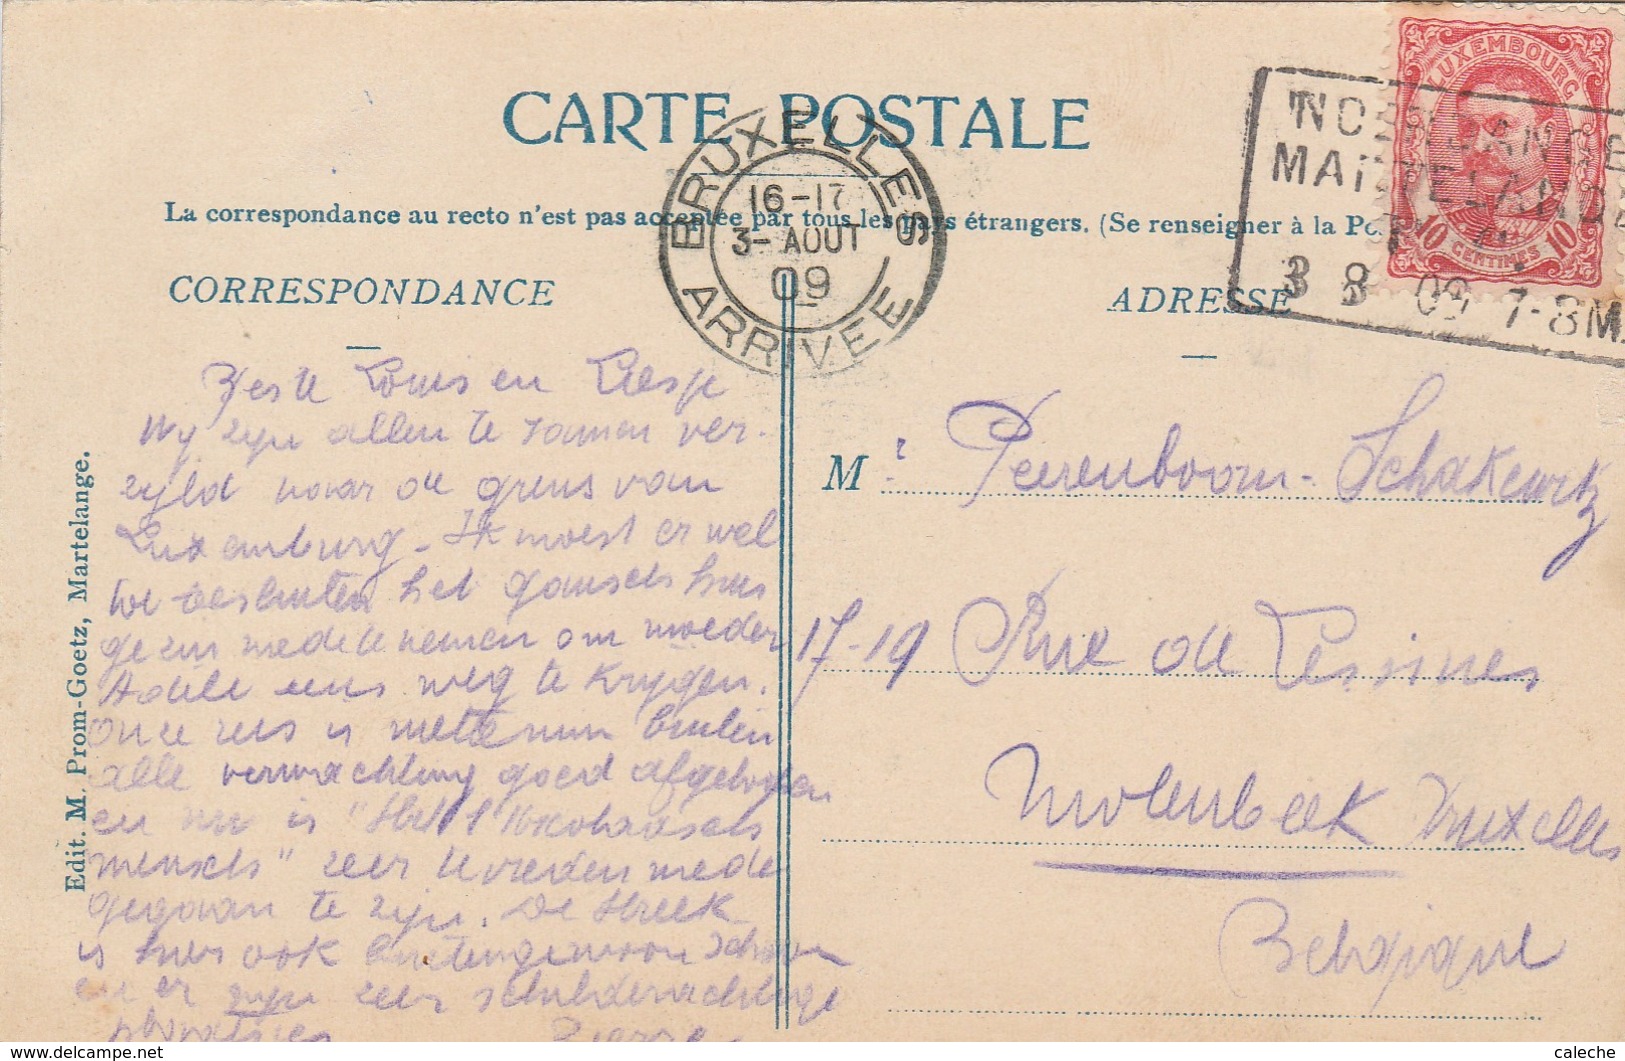 CARTE POSTALE
La correspondance au recto n'est pas acceptée par tous les pays étrangers. (Se renseigner à la Po
CORRESPONDANCE
ADRESSE
BRUXELLES
16-17
3- AOUT
09
ARRIVEE
LUXEMBOURG
10 CENTIMES 10
MARTELANGE
3 8 09 7-8M
Edit. M. Prom-Goetz, Martelange.
Beste Louis en Liesje
Wy zyn allen te samen ver-
zyld naar de grens van
Luxemburg - Ik moest er wel
toe besluiten het gansch huis
gezin mede te nemen om moeder
Adele eens weg te krygen.
Onze reis is buiten
alle verwachting goed afgeloopen
en nu is
mensch" zeer tevreden mede
gegaan te zyn. De streek
is hier ook buitengewoon schoon
en er zyn zeer schilderachtige
Pierre
M r Peerenboom-Schakewitz
17-19 Rue de Lessines
Molenbeek Bruxelles
Belgique
caleche